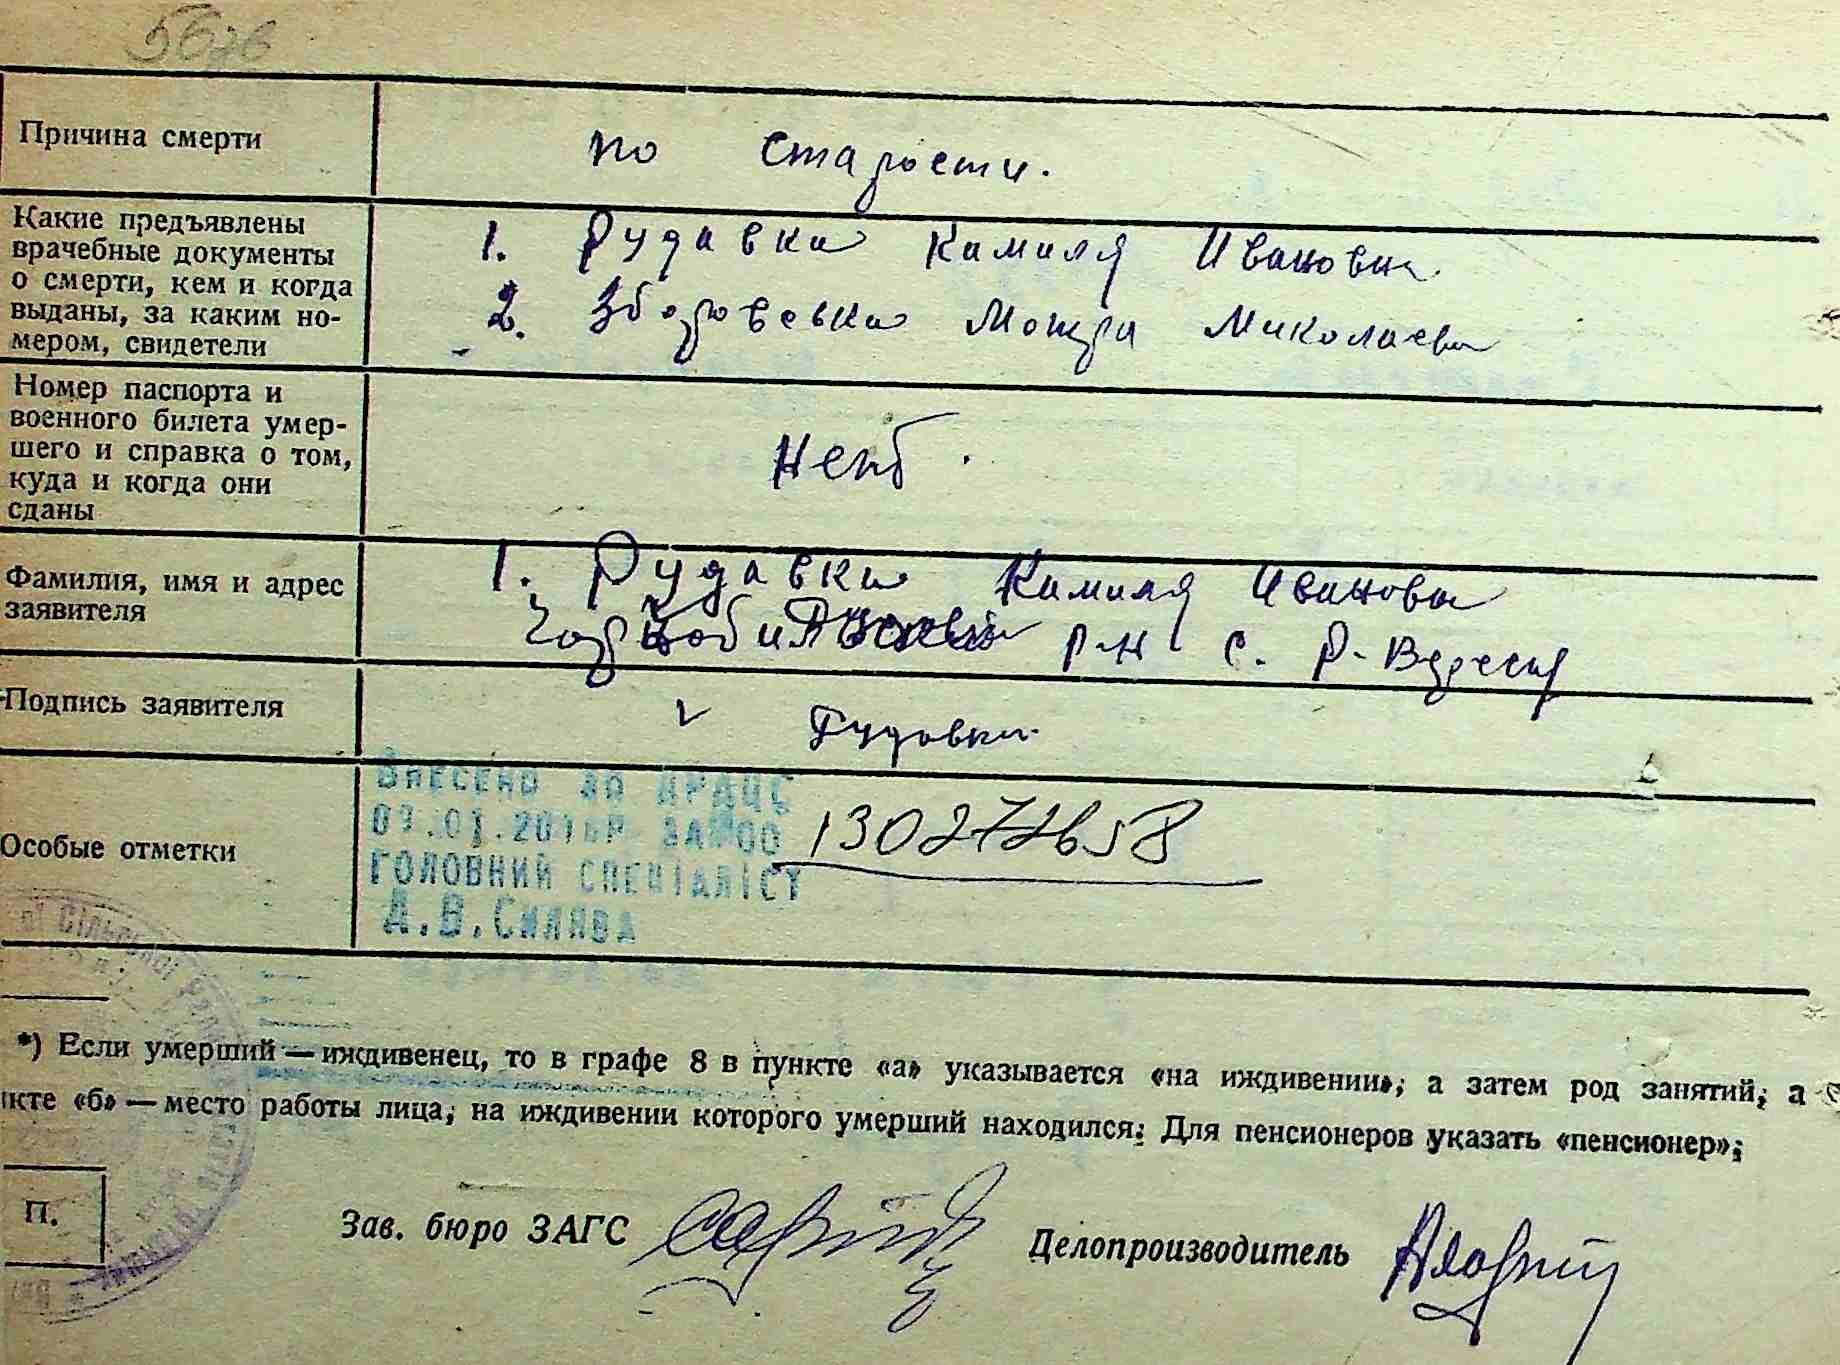 Причина смерти
по старости.
Какие предъявлены
врачебные документы
о смерти, кем и когда
выданы, за каким но-
мером, свидетели
1. Рудавка Камиля Ивановна
2. Зборовська Миколаевна
Номер паспорта и
военного билета умер-
шего и справка о том,
куда и когда они
сданы
Фамилия, имя и адрес
заявителя
1. Рудавка Камиля Ивановна
р-н с. Р-Вересня
Подпись заявителя
Рудавка
Особые отметки
Внесено до ДРАЦС
за №00 130272658
Головний спеціаліст
Д.В.Силява
*) Если умерший — иждивенец, то в графе 8 в пункте «а» указывается «на иждивении», а затем род занятий; а
нкте «б» — место работы лица, на иждивении которого умерший находился; Для пенсионеров указать «пенсионер»;
П.
Зав. бюро ЗАГС
Делопроизводитель
Сільської